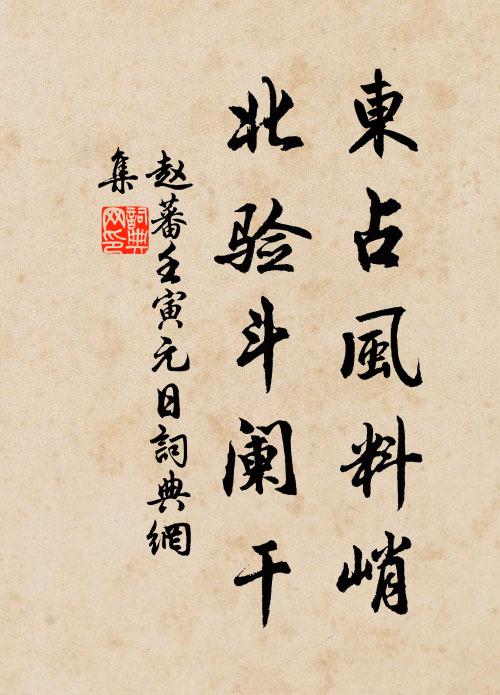 東占風料峭
北验斗阑干
赵蕃壬寅元日詞典網
集
詞典网印